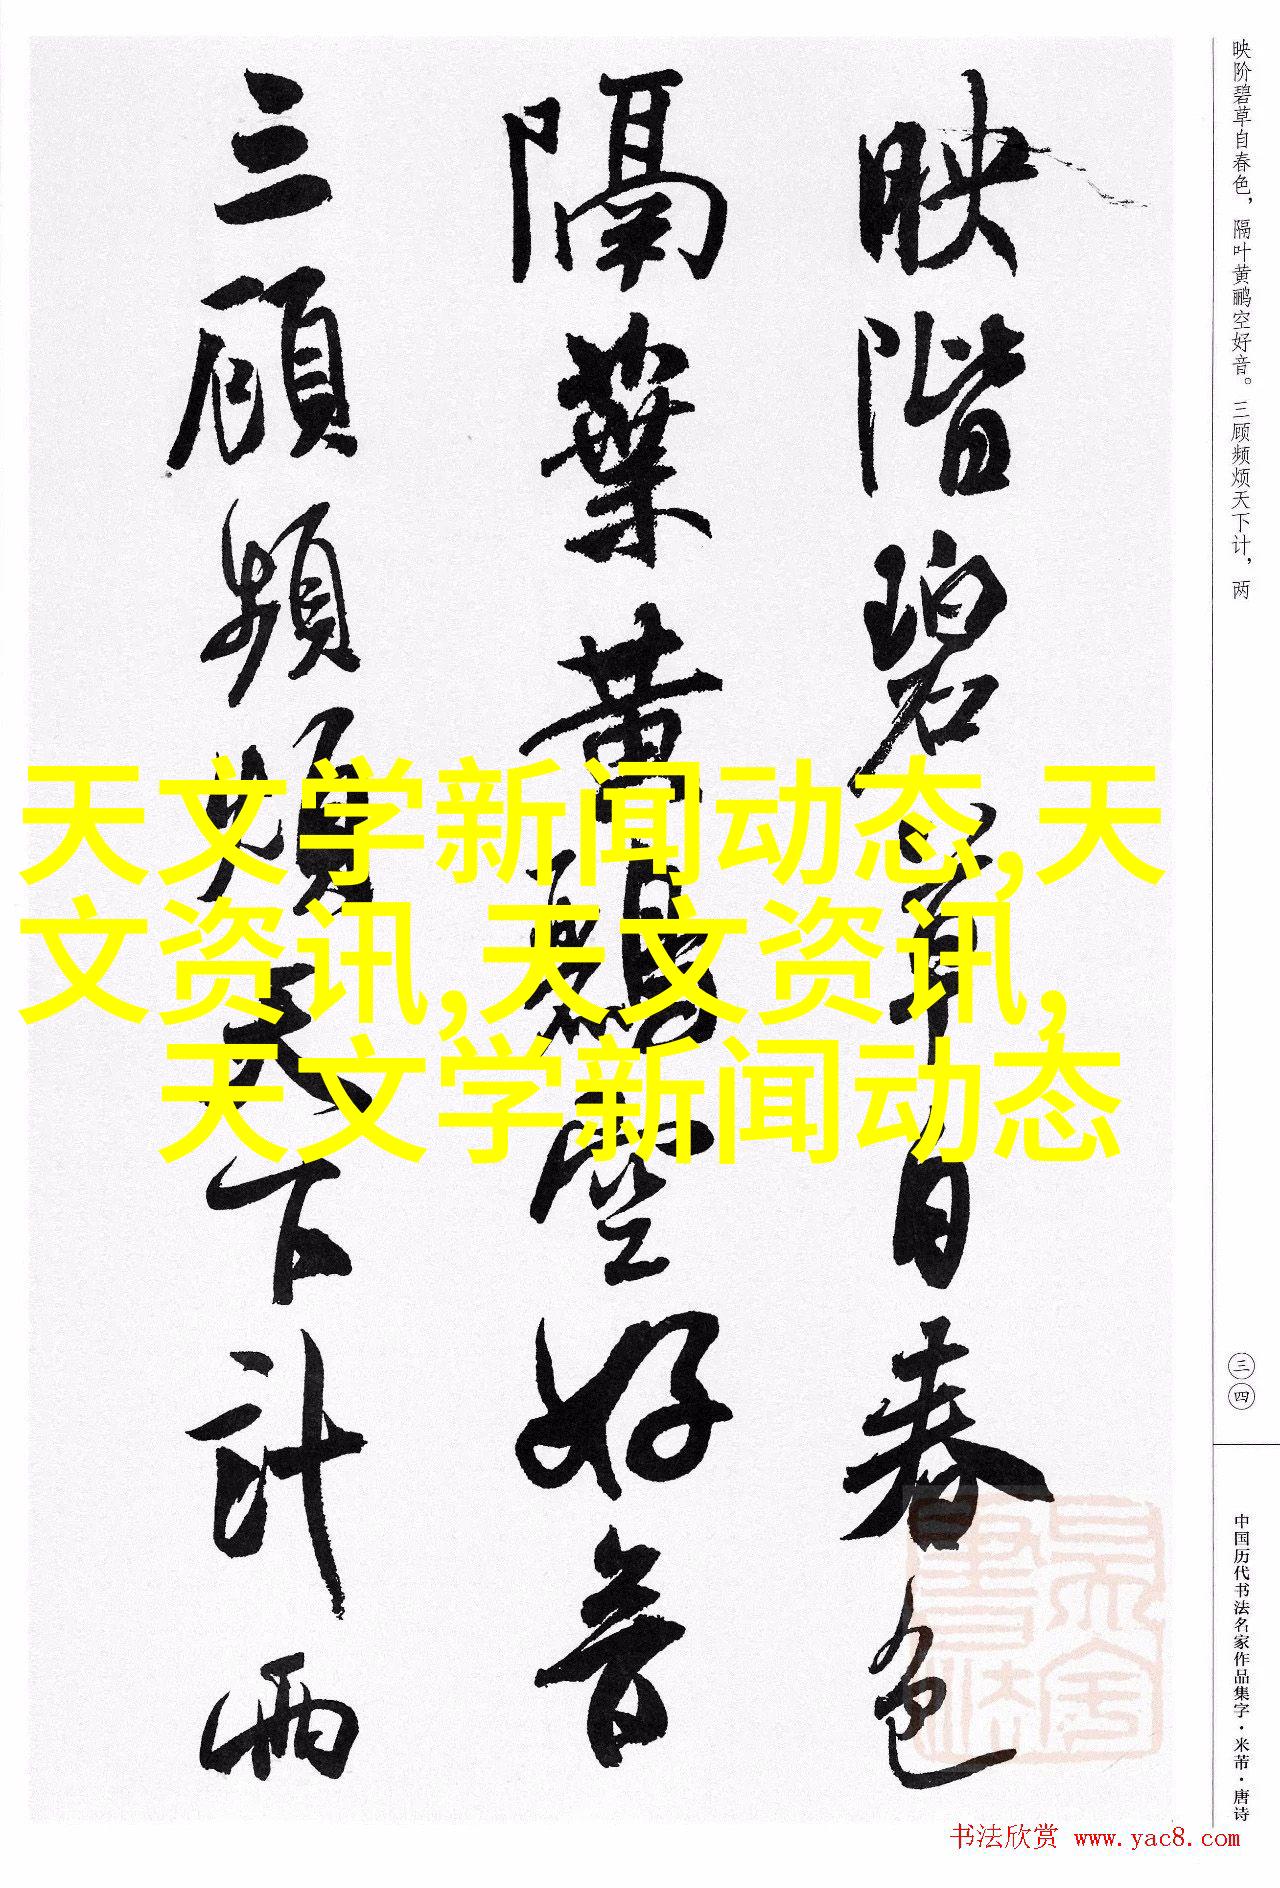 映階碧草自春色
隔葉黄鸝空好音
三顧頻煩天下計兩
映阶碧草自春色，隔叶黄鹂空好音。三顾频烦天下计，两
三四
中国历代书法名家作品集字·米芾·唐诗
天文学新闻动态,天
文资讯,天文资讯,
天文学新闻动态
书法欣赏 www.yac8.com